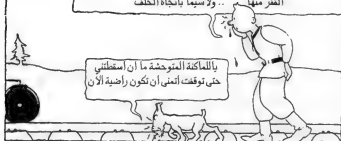 القفز منها .. ولا سيما باتجاه الخلف
ياللماكنة المتوحشة ما أن أسقطتني
حتى توقفت أتمنى أن تكون راضية الآن